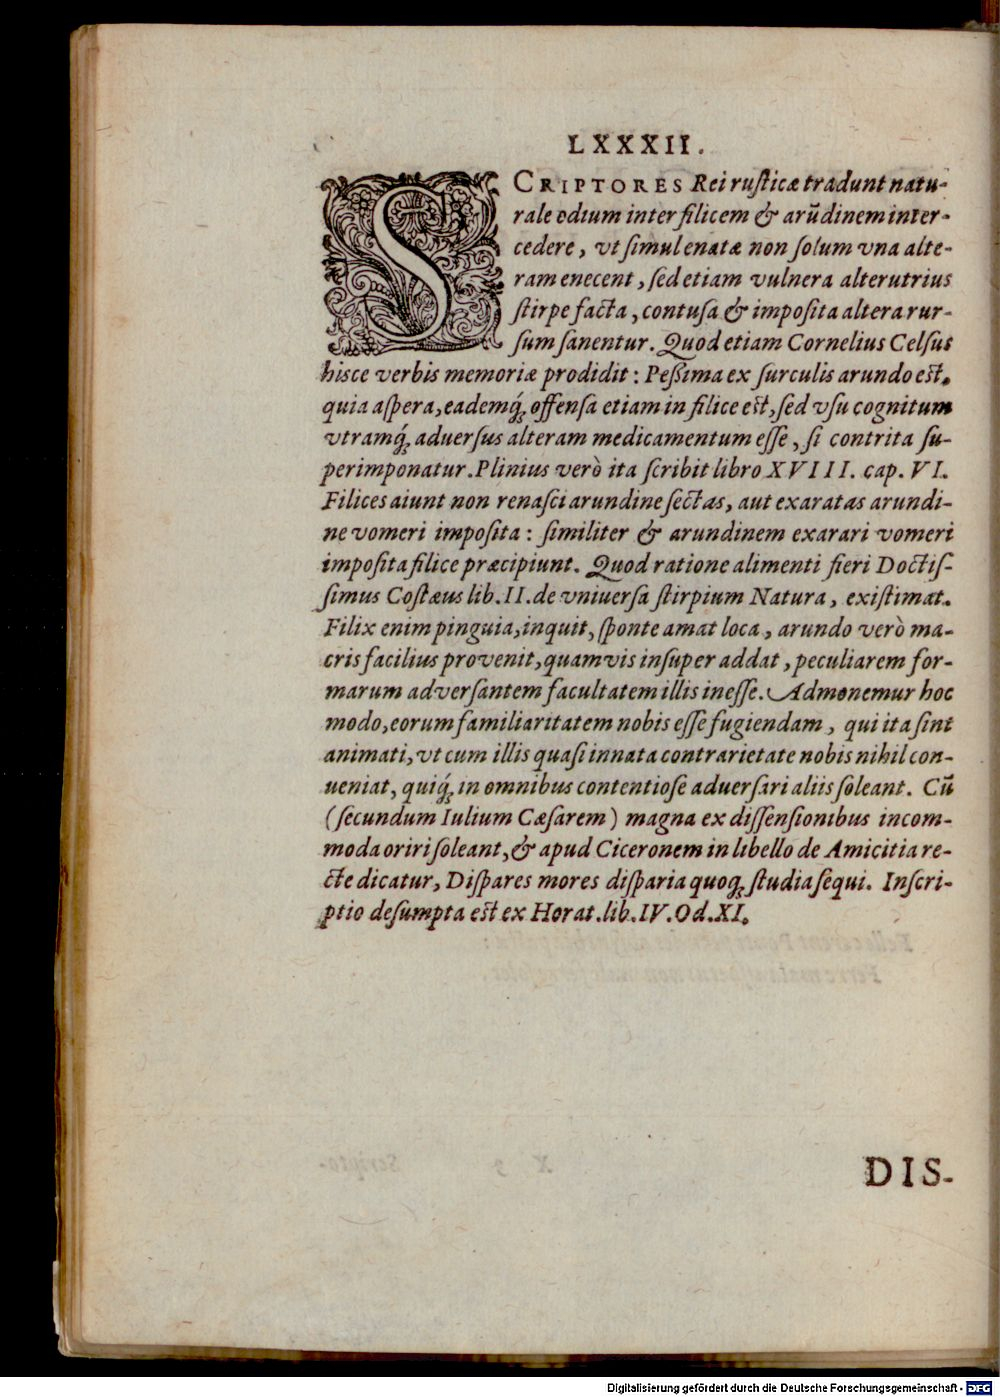 LXXXII.
SCRIPTORES Rei rusticæ tradunt natu-
rale odium inter filicem & arũdinem inter-
cedere, vt simul enatæ non solum vna alte-
ram enecent, sed etiam vulnera alterutrius
stirpe facta, contusa & imposita altera rur-
sum sanentur. Quod etiam Cornelius Celsus
hisce verbis memoriæ prodidit: Peßima ex surculis arundo est,
quia aspera, eademq́; offensa etiam in filice est, sed vsu cognitum
vtramq́; aduersus alteram medicamentum esse, si contrita su-
perimponatur. Plinius verò ita scribit libro XVIII. cap. VI.
Filices aiunt non renasci arundine sectas, aut exaratas arundi-
ne vomeri imposita: similiter & arundinem exarari vomeri
imposita filice præcipiunt. Quod ratione alimenti fieri Doctis-
simus Costæus lib. II. de vniuersa stirpium Natura, existimat.
Filix enim pinguia, inquit, sponte amat loca, arundo verò ma-
cris facilius provenit, quamvis insuper addat, peculiarem for-
marum adversantem facultatem illis inesse. Admonemur hoc
modo, eorum familiaritatem nobis esse fugiendam, qui ita sint
animati, vt cum illis quasi innata contrarietate nobis nihil con-
ueniat, quiq́; in omnibus contentiose aduersari aliis soleant. Cũ
(secundum Iulium Cæsarem) magna ex dissensionibus incom-
moda oriri soleant, & apud Ciceronem in libello de Amicitia re-
cte dicatur, Dispares mores disparia quoq; studia sequi. Inscri-
ptio desumpta est ex Horat. lib. IV. Od. XI.
DIS-
Digitalisierung gefördert durch die Deutsche Forschungsgemeinschaft - DFG